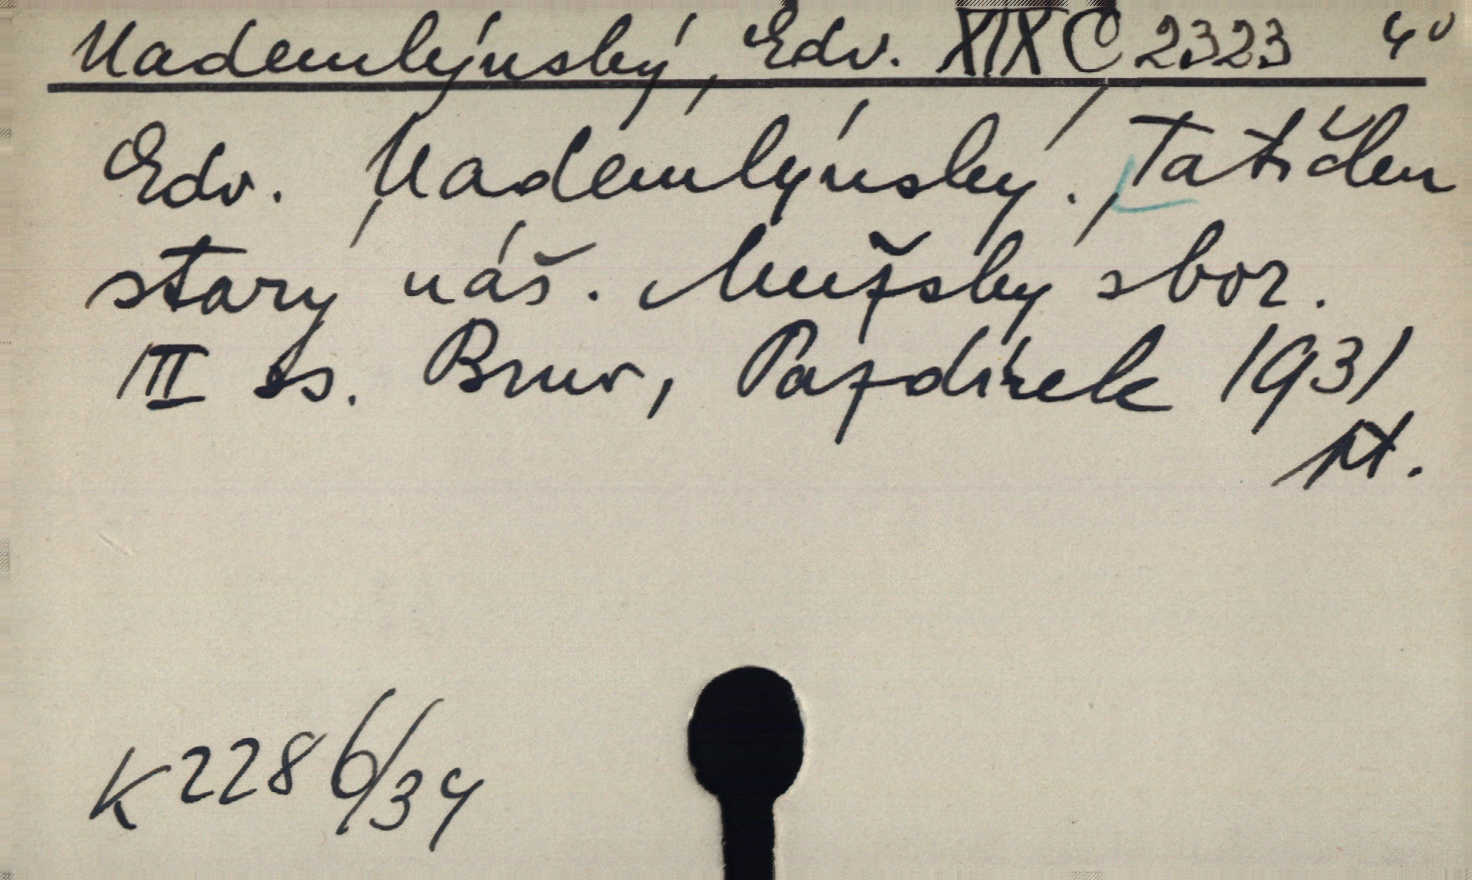 Nademlýnský, Edv. XIX C 2323 4°
Edv. Nademlýnský. Tatíčku
starý náš. Mužský sbor.
II s. Brno, Pazdírek 1931
pt.
K 2286/34